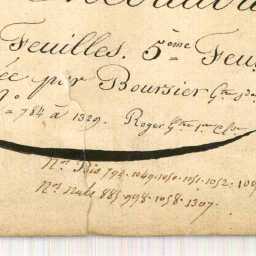 Feuilles. 5eme Feu
ée par Boursier Gtre
No = 784 à 1329. Roger Gtre 1re Clse
Nos Bis 794. 1049. 1050. 1051. 1052. 109
Nos nuls 885. 998. 1058. 1307.